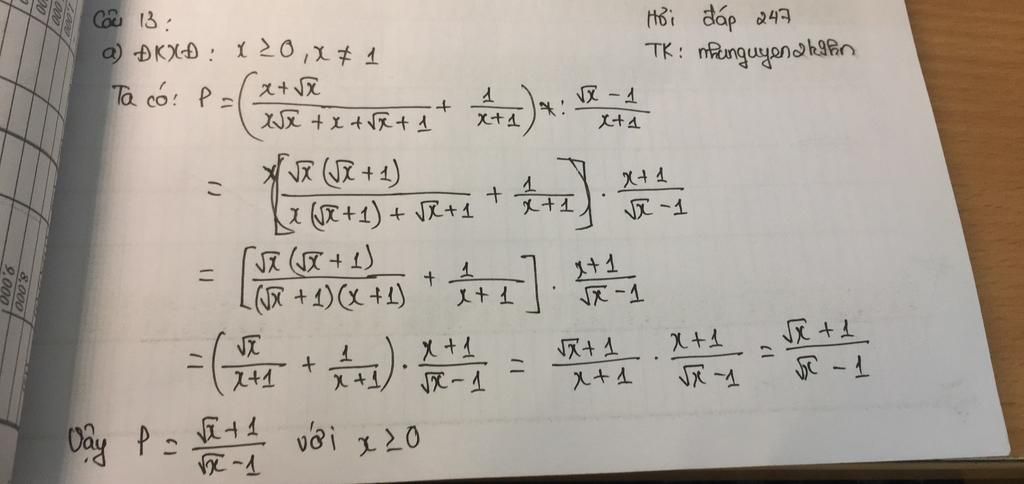 Câu 13:
Hỏi đáp 247
a) ĐKXĐ: x ≥ 0, x ≠ 1
TK: nhanguyen2k9hn
Ta có: P = ((x+√x)/(x√x + x + √x + 1) + 1/(x+1)) : (√x - 1)/(x+1)
= [√x (√x + 1)/(x (√x+1) + √x+1) + 1/(x+1)] . (x+1)/(√x - 1)
= [√x (√x + 1)/((√x + 1)(x+1)) + 1/(x+1)] . (x+1)/(√x - 1)
= (√x/(x+1) + 1/(x+1)) . (x+1)/(√x - 1) = (√x+1)/(x+1) . (x+1)/(√x - 1) = (√x + 1)/(√x - 1)
Vậy P = (√x+1)/(√x-1) với x ≥ 0
9.000
8.000